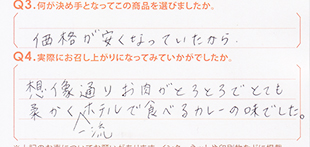 Q3.何が決め手となってこの商品を選びましたか。
価格が安くなっていたから.
Q4.実際にお召し上がりになってみていかがでしたか。
想像通りお肉がとろとろでとても
柔かくホテルで食べるカレーの味でした。
一流